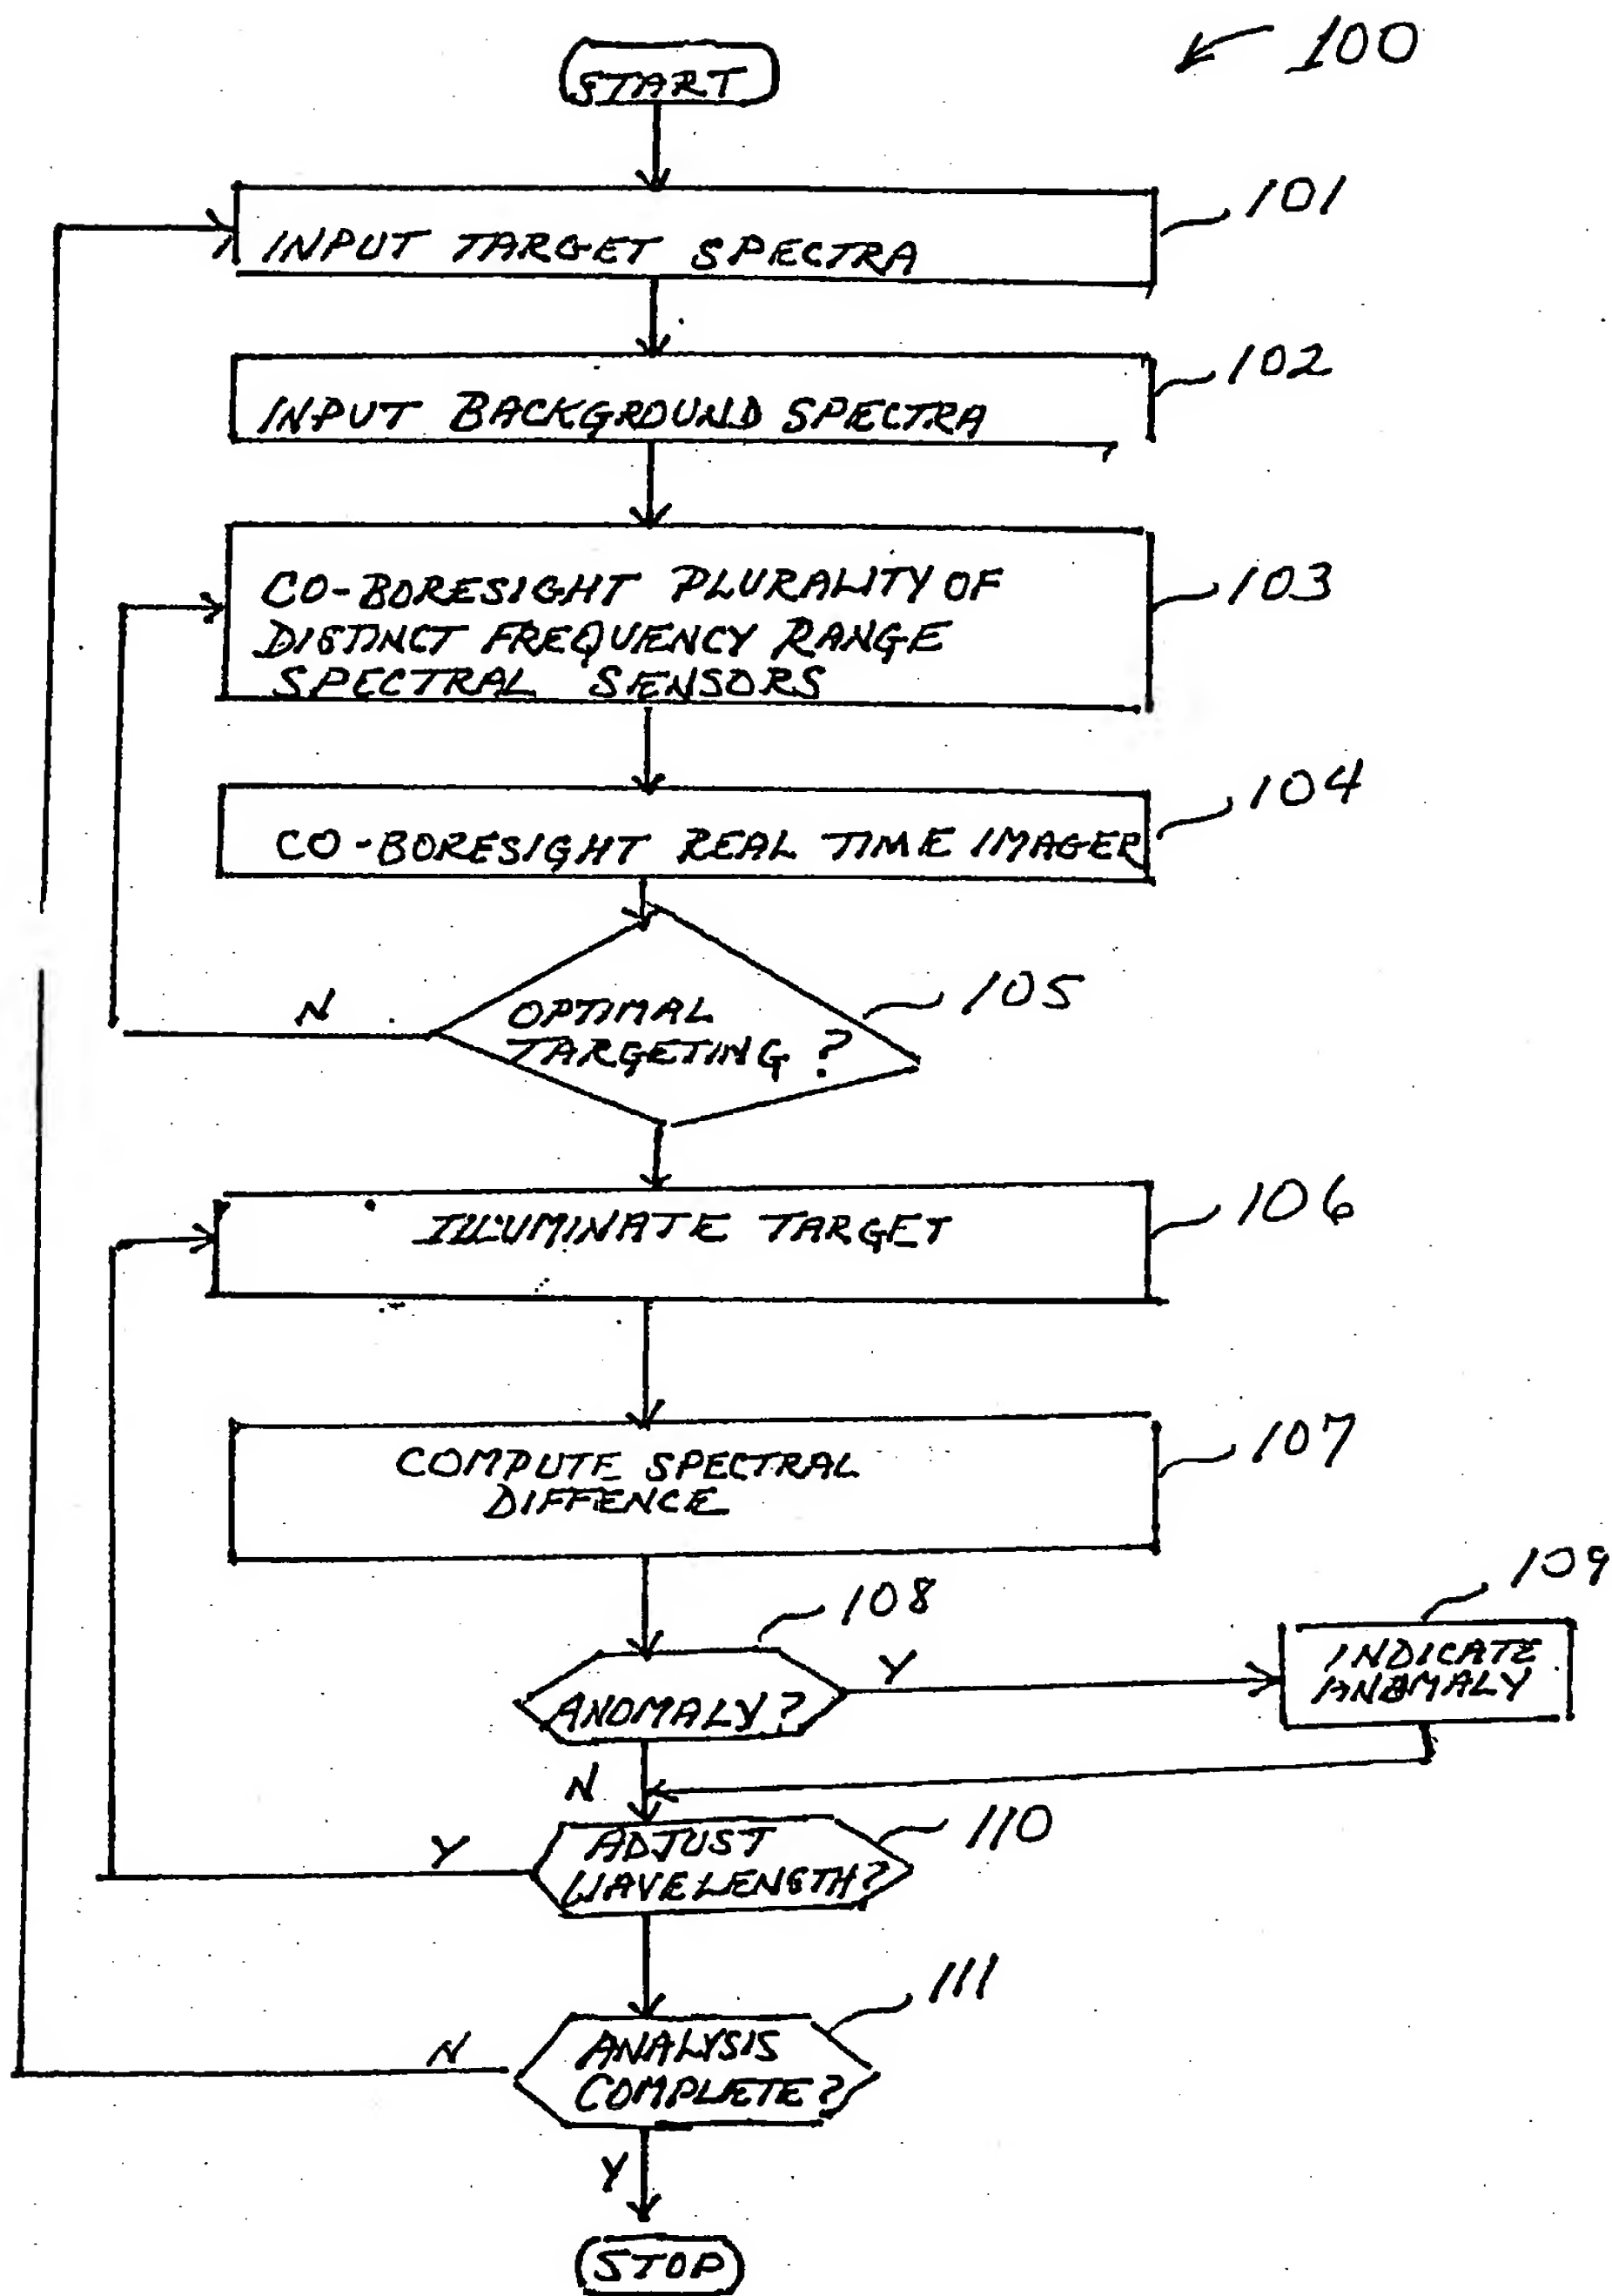 100
START
101
INPUT TARGET SPECTRA
102
INPUT BACKGROUND SPECTRA
CO-BORESIGHT PLURALITY OF
103
DISTINCT FREQUENCY RANGE
SPECTRAL SENSORS
104
CO-BORESIGHT REAL TIME IMAGER
105
N
OPTIMAL
TARGETING ?
106
ILLUMINATE TARGET
107
COMPUTE SPECTRAL
DIFFENCE
109
108
INDICATE
ANOMALY
Y
ANOMALY?
N
110
Y
ADJUST
WAVELENGTH?
111
N
ANALYSIS
COMPLETE?
Y
STOP